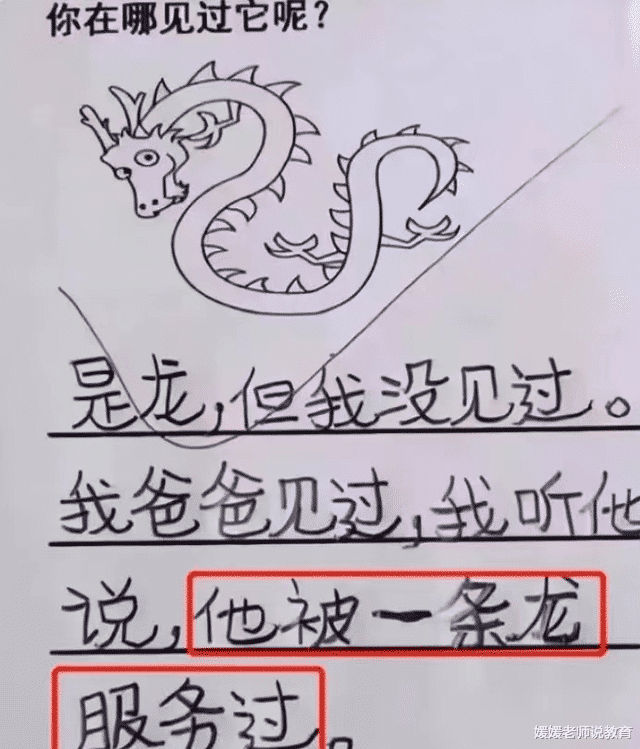 你在哪见过它呢？
是龙，但我没见过。
我爸爸见过，我听他
说，他被一条龙
服务过。
媛媛老师说教育